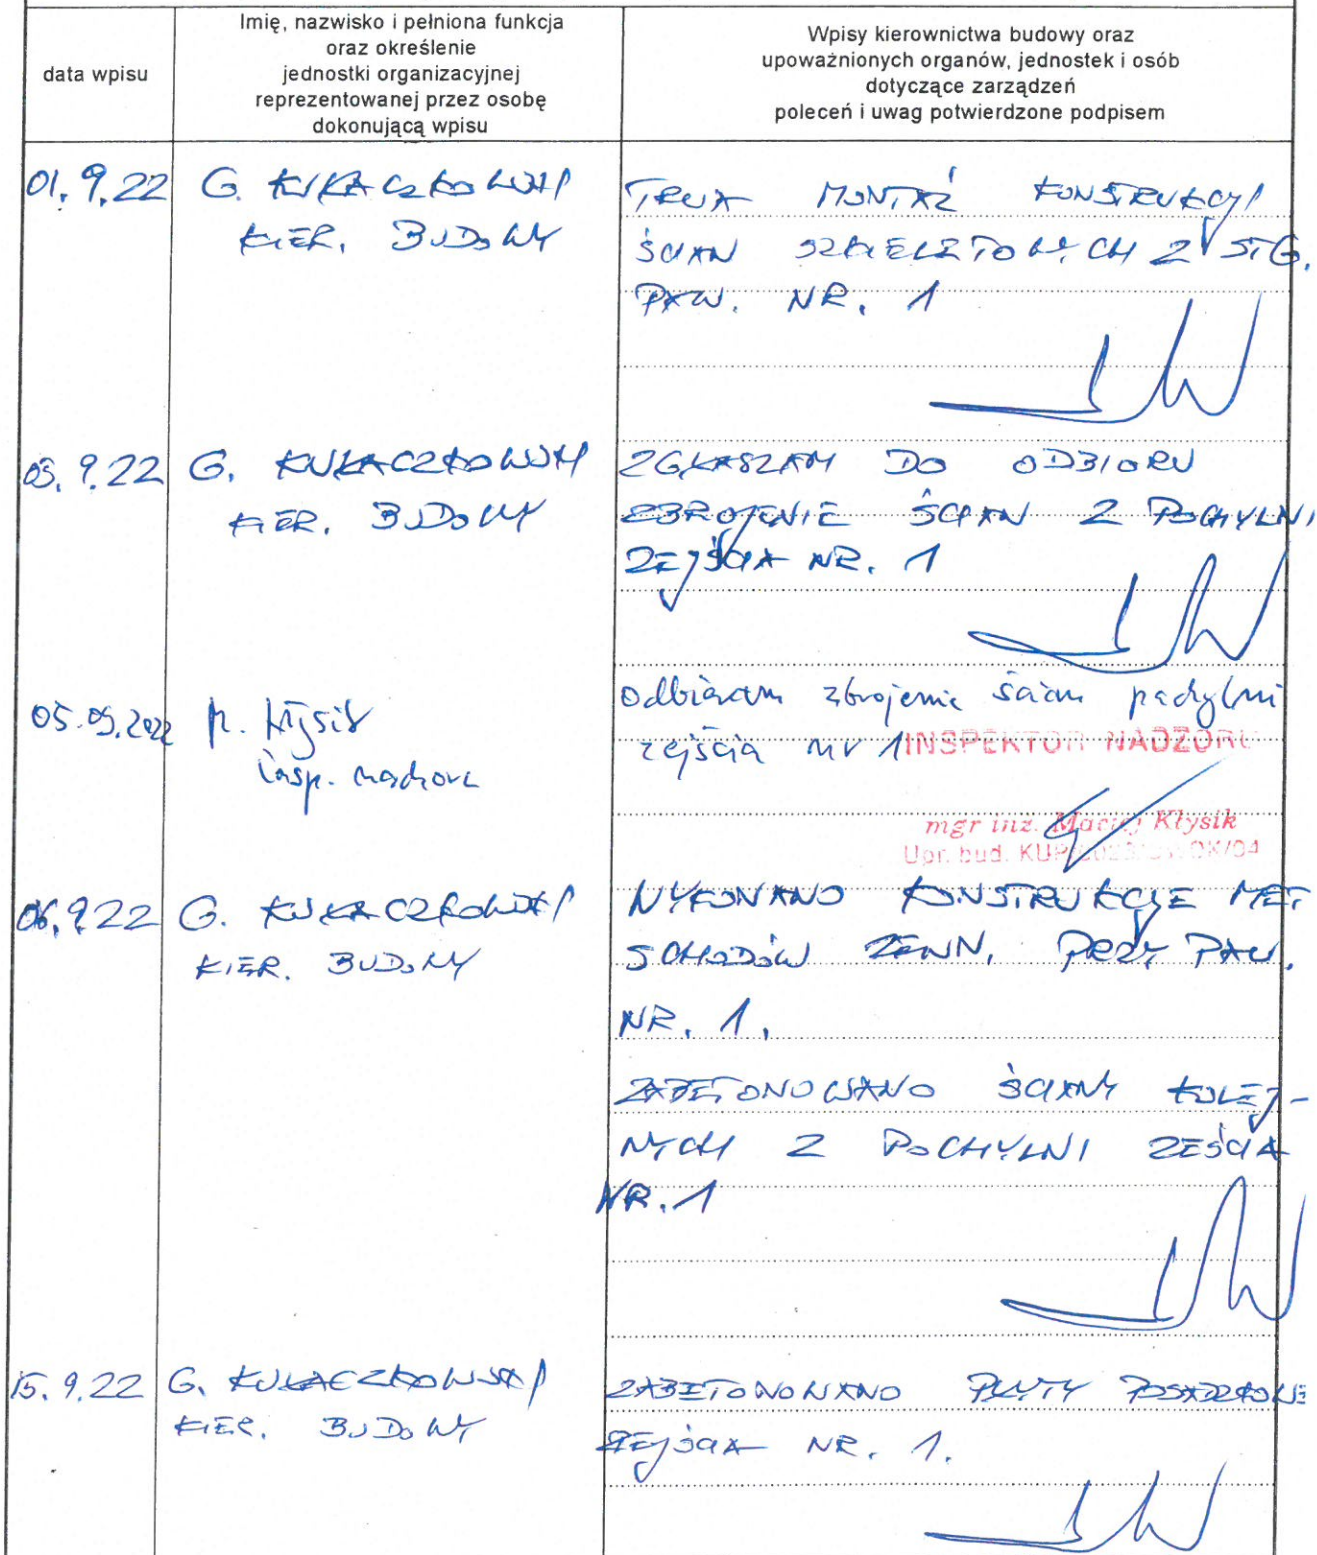 data wpisu
Imię, nazwisko i pełniona funkcja
oraz określenie
jednostki organizacyjnej
reprezentowanej przez osobę
dokonującą wpisu
Wpisy kierownictwa budowy oraz
upoważnionych organów, jednostek i osób
dotyczące zarządzeń
poleceń i uwag potwierdzone podpisem
01.9.22
G.
KIER. BUDOWY
TRWA MONTAŻ KONSTRUKCJI
ŚCIAN SZKIELETOWYCH 2 STG.
PAW. NR. 1
05.9.22
G.
KIER. BUDOWY
ZGŁASZAM DO ODBIORU
ZBROJENIE ŚCIAN 2 POCHYLNI
ZEJŚCIA NR. 1
05.09.2022
Kłysik
insp. nadzoru
odbieram zbrojenie ścian pochylni
zejścia nr 1
INSPEKTOR NADZORU
mgr inż. Maciej Kłysik
Upr. bud. KUP
06.9.22
G.
KIER. BUDOWY
WYKONANO KONSTRUKCJE MET
SCHODÓW ZEWN. PRZY PAW.
NR. 1.
ZABETONOWANO ŚCIANY KOLEJ-
NYCH 2 POCHYLNI ZEŚCIA
NR. 1
15.9.22
G.
KIER. BUDOWY
ZABETONOWANO PŁYTY POSADZKOWE
ZEJŚCIA NR. 1.